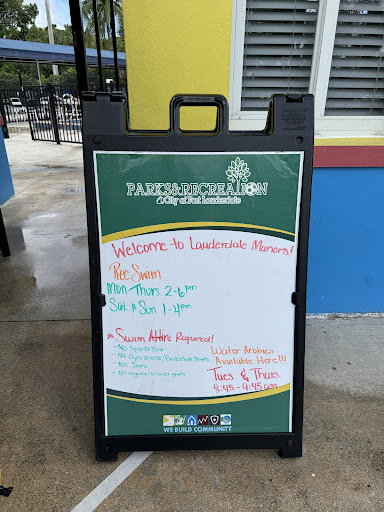 PARKS&RECREATION
City of Fort Lauderdale
Welcome to Lauderdale Manors!
Rec Swim
Mon-Thurs. 2-6pm
Sat. & Sun 1-4pm
* Swim Attire Required!
- No Sports Bra
- No Gym shorts/Basketball Shorts
- No Jeans
- No regular/
Water Aerobics
Available Here!!!
Tues. & Thurs
8:45-9:45am
WE BUILD COMMUNITY